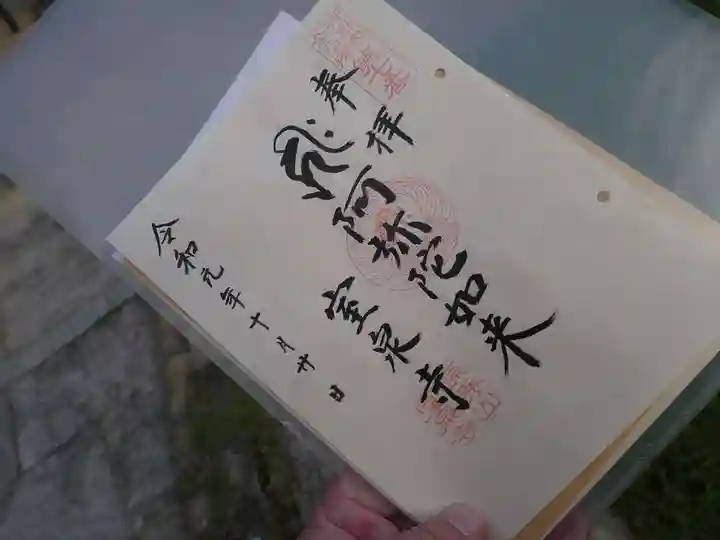 奉拝
阿弥陀如来
室泉寺
令和元年十月廿日